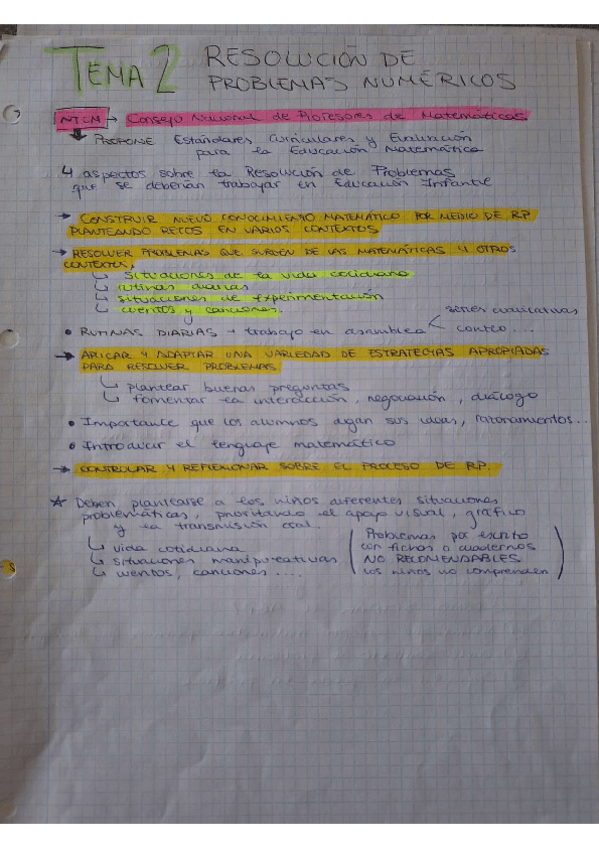 TEMA 2 RESOLUCIÓN DE
PROBLEMAS NUMÉRICOS
NTCM → Consejo Nacional de Profesores de Matemáticas
PROPONE Estándares Curriculares y Evaluación
para la Educación Matemática
4 aspectos sobre la Resolución de Problemas
que se deberían trabajar en Educación Infantil
→ CONSTRUIR NUEVO CONOCIMIENTO MATEMÁTICO POR MEDIO DE RP
PLANTEANDO RETOS EN VARIOS CONTEXTOS
→ RESOLVER PROBLEMAS QUE SURGEN DE LAS MATEMÁTICAS Y OTROS
CONTEXTOS,
situaciones de la vida cotidiana
rutinas diarias
situaciones de experimentación
cuentos y canciones.
• RUTINAS DIARIAS → trabajo en asamblea < series cualitativas
conteo...
→ APLICAR Y ADAPTAR UNA VARIEDAD DE ESTRATEGIAS APROPIADAS
PARA RESOLVER PROBLEMAS
plantear buenas preguntas
fomentar la interacción, negociación, diálogo
• Importante que los alumnos digan sus ideas, razonamientos...
• Introducir el lenguaje matemático
→ CONTROLAR Y REFLEXIONAR SOBRE EL PROCESO DE RP.
* Deben plantearse a los niños diferentes situaciones
problemáticas, priorizando el apoyo visual, gráfico
y la transmisión oral.
vida cotidiana
situaciones manipulativas
cuentos, canciones ....
(Problemas por escrito
con fichas o cuadernos
NO RECOMENDABLES
los niños no comprenden)